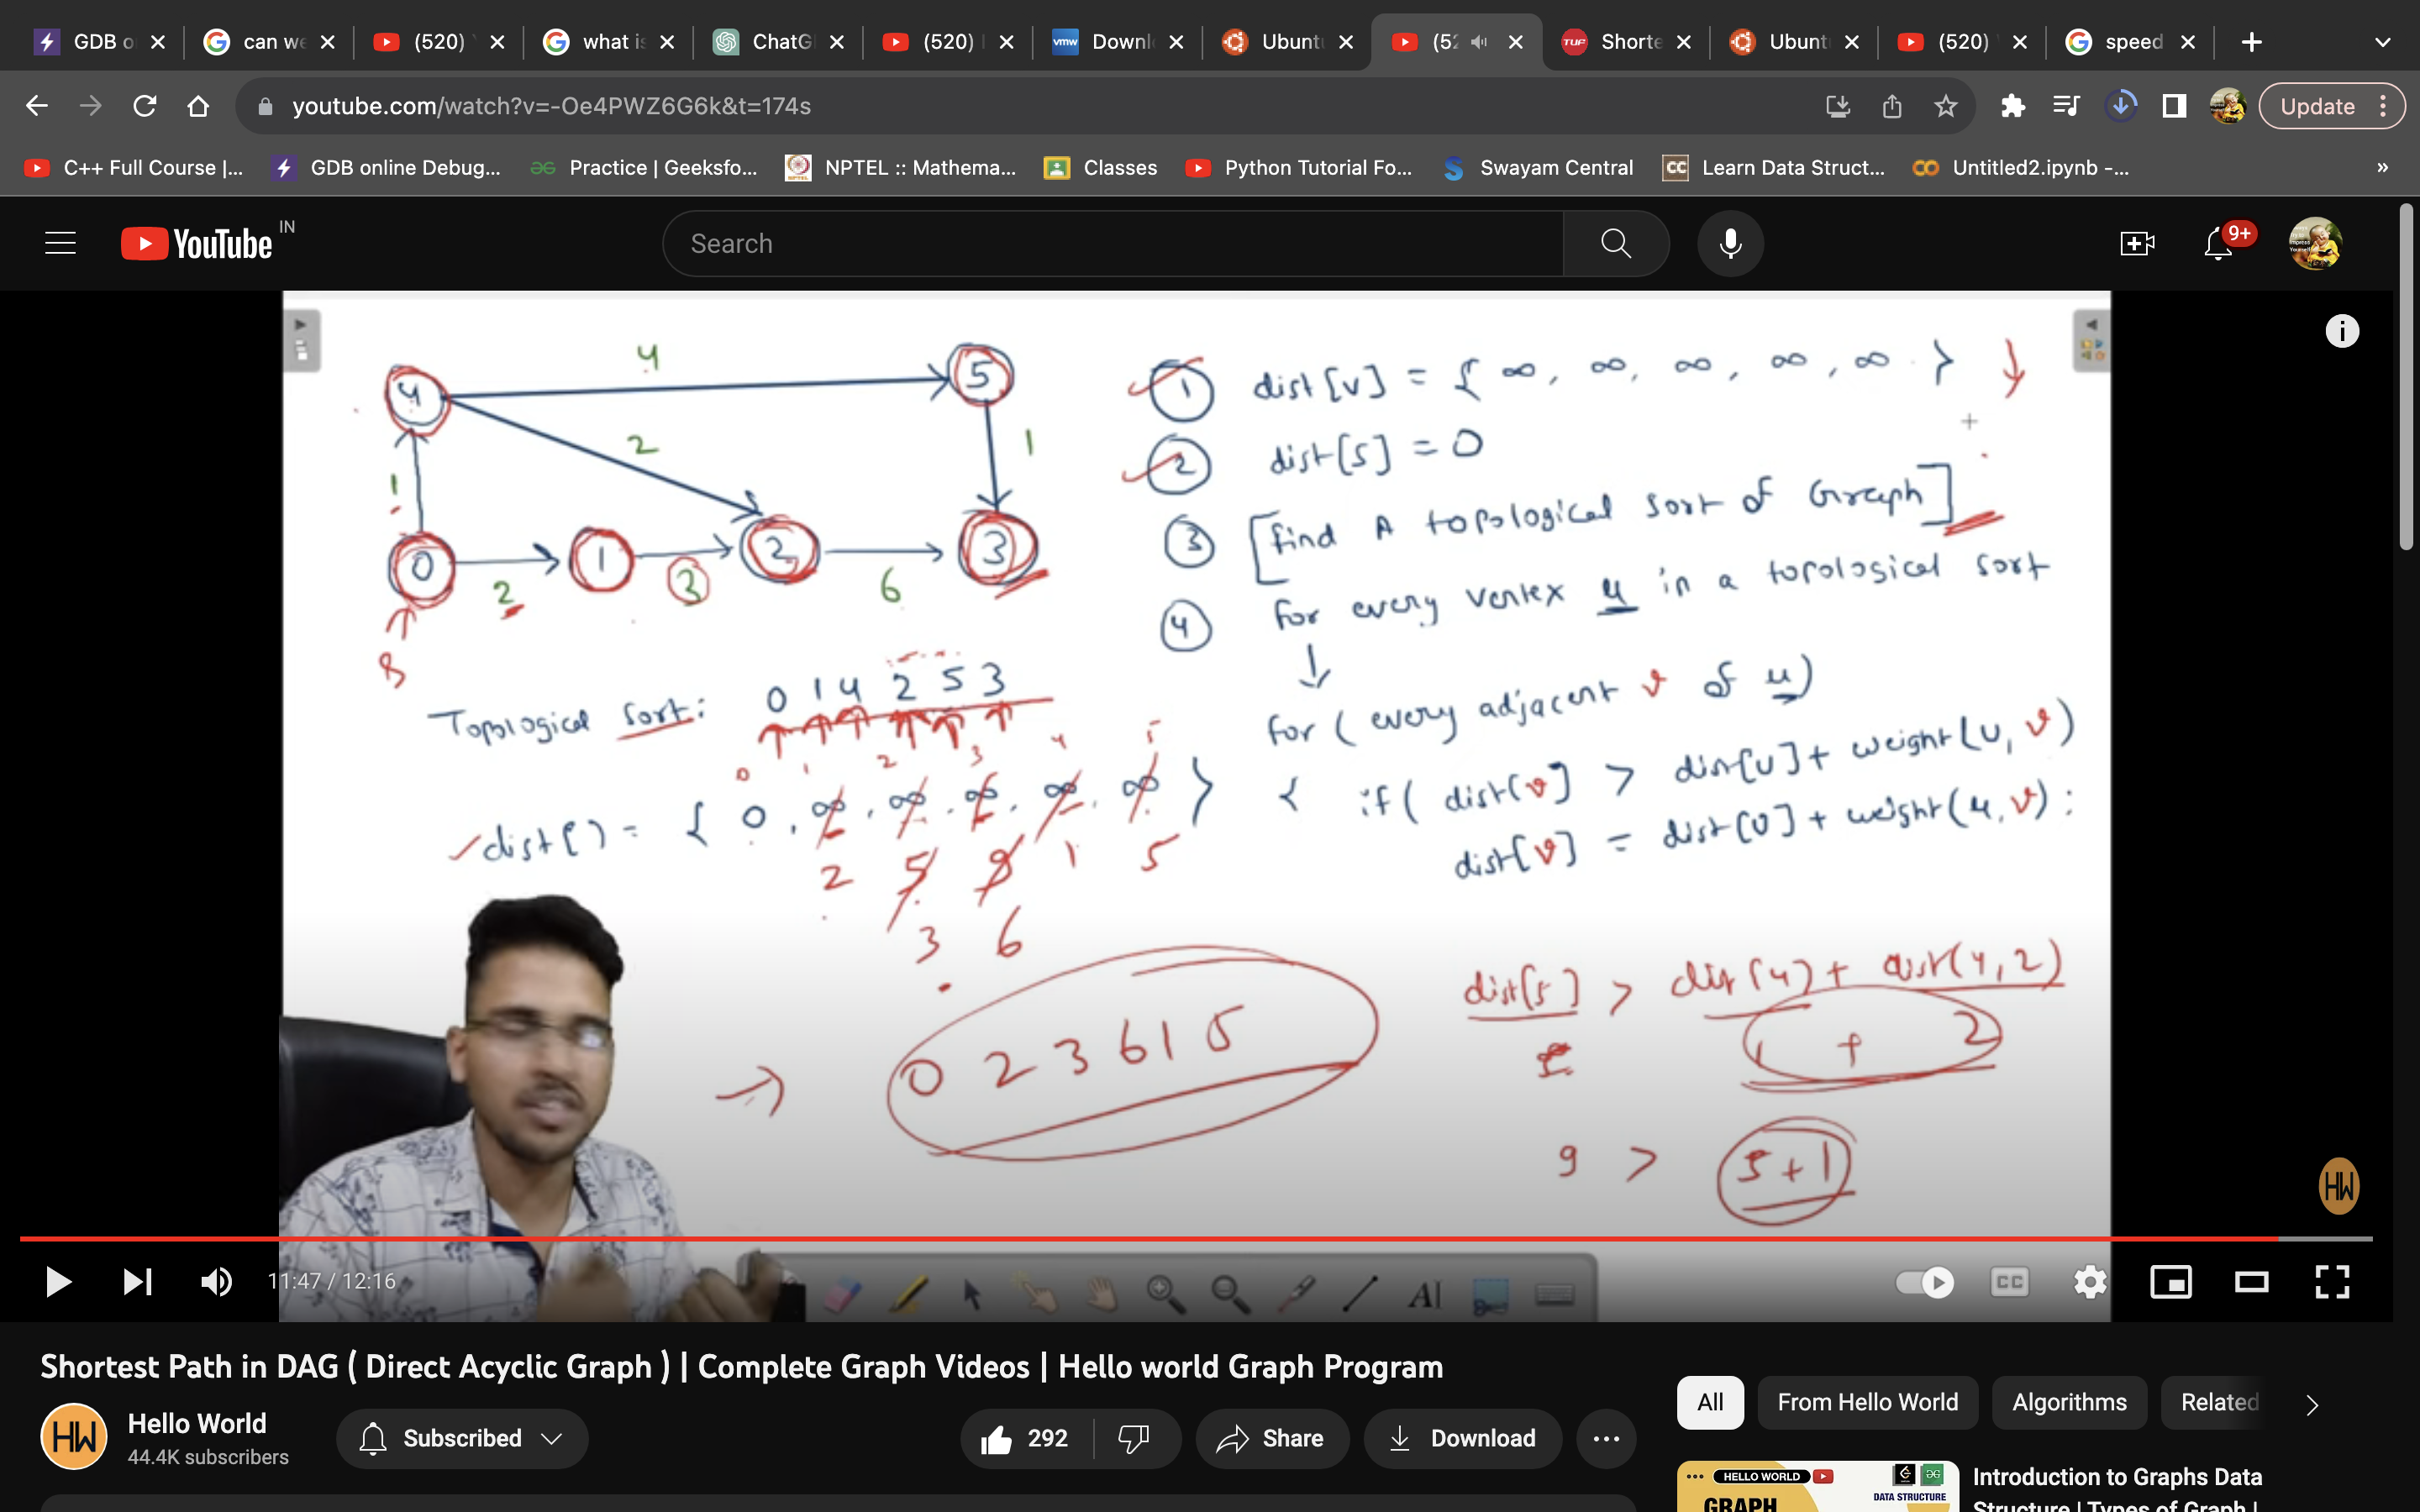 GDB o
can we
(520)
what is
ChatG
(520)
vmw Downl
Ubunt
(52
TUF Shorte
Ubunt
(520)
speed
youtube.com/watch?v=-Oe4PWZ6G6k&t=174s
Update
C++ Full Course |...
GDB online Debug...
Practice | Geeksfo...
NPTEL :: Mathema...
Classes
Python Tutorial Fo...
Swayam Central
CC Learn Data Struct...
CO Untitled2.ipynb -...
»
YouTube IN
Search
9+
4
4 5
2
1
1
0 1 2 3
2 3 6
S
① dist[v] = { ∞, ∞, ∞, ∞, ∞ }
② dist[s] = 0
③ [find A topological sort of Graph]
④ for every vertex u in a topological sort
for ( every adjacent v of u)
{ if( dist[v] > dist[u] + weight(u, v)
dist[v] = dist[u] + weight(u, v);
Topological Sort: 0 1 4 2 5 3
0 1 2 3 4 5
dist[] = { 0, ∞, ∞, ∞, ∞, ∞ }
2 5 9 1 5
3 6
0 2 3 6 1 5
dist[5] > dist(4) + dist(4,2)
1 + 2
9 > 5+1
HW
11:47 / 12:16
CC
AI
Shortest Path in DAG ( Direct Acyclic Graph ) | Complete Graph Videos | Hello world Graph Program
HW
Hello World
44.4K subscribers
Subscribed
292
Share
Download
All
From Hello World
Algorithms
Related
HELLO WORLD
GRAPH
DATA STRUCTURE
Introduction to Graphs Data
Structure | Types of Graph |